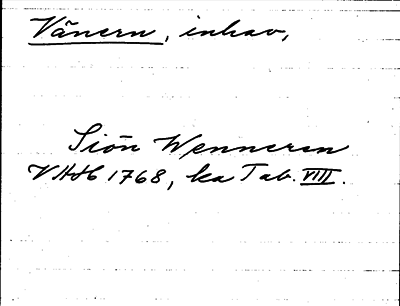 Vänern, inhav,
Siön Wenneren
VAH 1768, ka Tab. VIII.